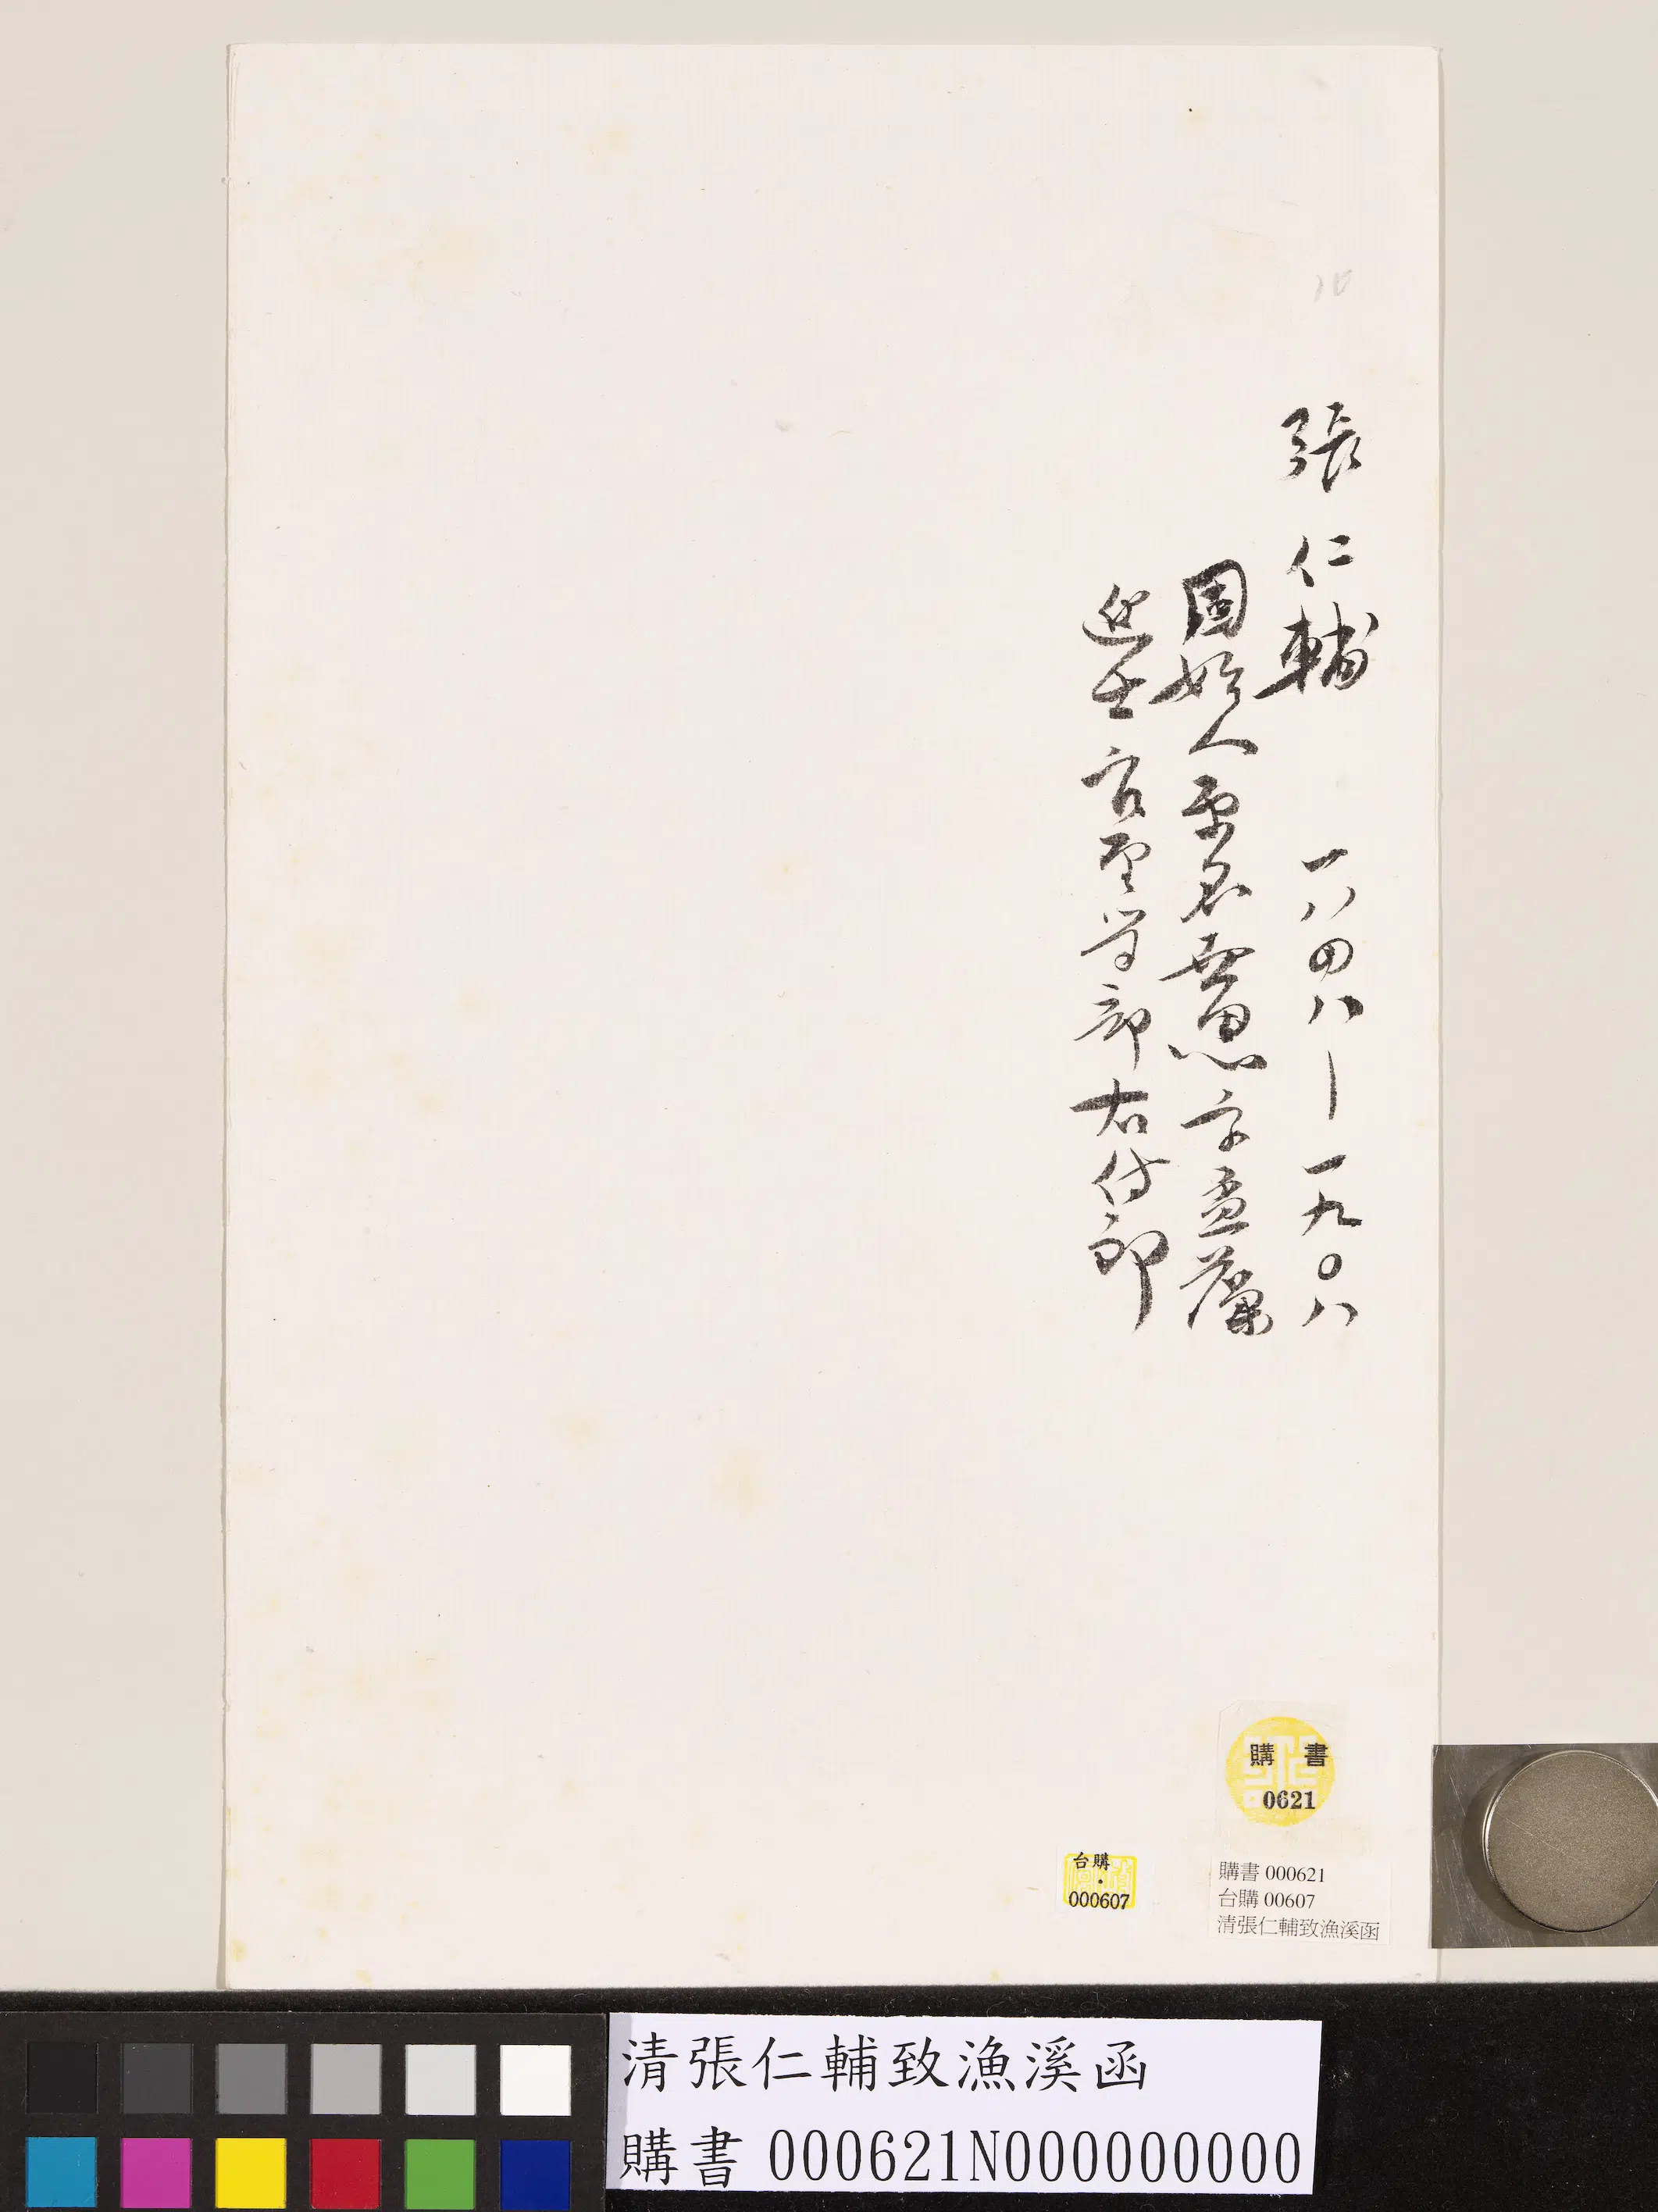 張仁輔 一八四八｜一九〇八
固始人原名世恩字孟藻
進士官至学部右侍郎
購書
0621
台購
000607
購書 000621
台購 00607
清張仁輔致漁溪函
清張仁輔致漁溪函
購書 000621N000000000